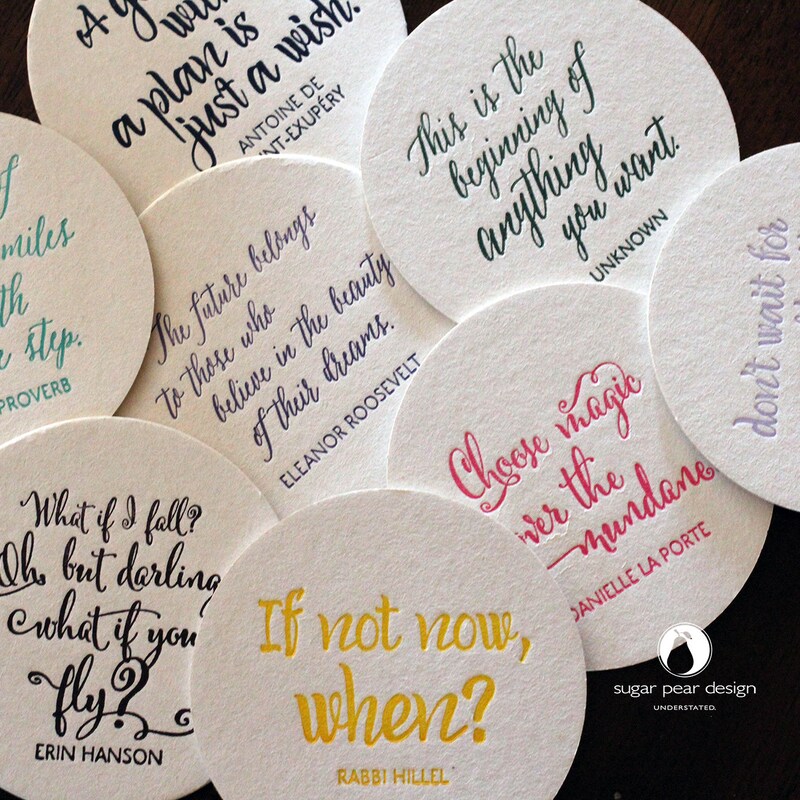 A
a plan is
just a wish.
ANTOINE DE
NT-EXUPÉRY
This is the
beginning of
anything
you want.
UNKNOWN
of
miles
step.
PROVERB
The future belongs
to those who
believe in the beauty
of their dreams.
ELEANOR ROOSEVELT
don't wait for
Choose magic
over the
mundane.
DANIELLE LA PORTE
What if I fall?
Oh, but darling
what if you
fly?
ERIN HANSON
If not now,
when?
RABBI HILLEL
sugar pear design
UNDERSTATED.